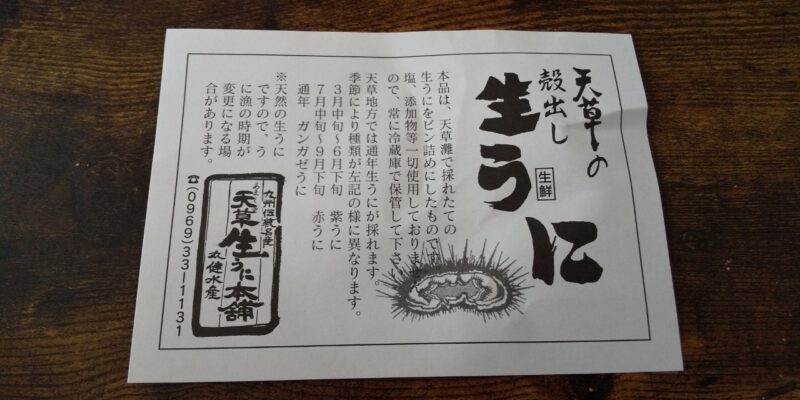 天草の
殻出し
生うに
生鮮
本品は、天草灘で採れたての
生うにをビン詰めにしたものです。
塩、添加物等一切使用しておりません
ので、常に冷蔵庫で保管して下さい。
天草地方では通年生うにが採れます。
季節により種類が左記の様に異なります。
３月中旬〜６月下旬　紫うに
７月中旬〜９月下旬　赤うに
通年　ガンガゼうに
※天然の生うに
ですので、う
に漁の時期が
変更になる場
合があります。
九州伝承名産
天草生うに本舗
丸健水産
☎(0969)33-1131